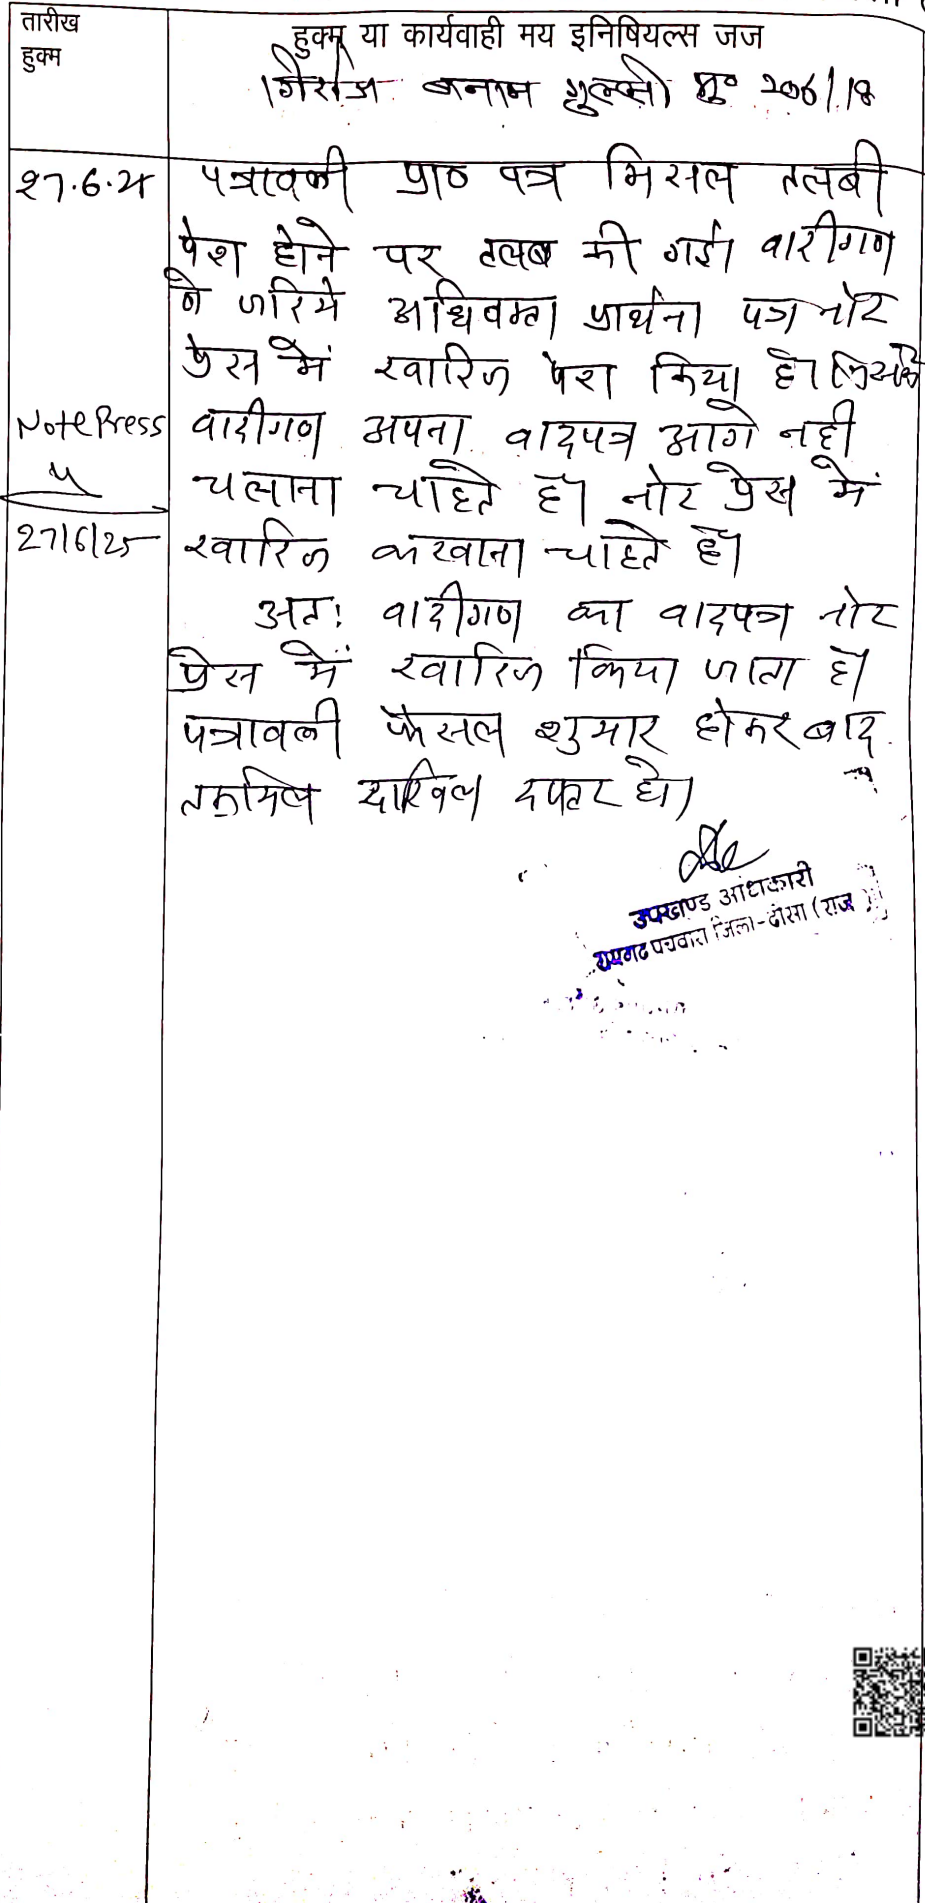 तारीख
हुक्म
हुक्म या कार्यवाही मय इनिषियल्स जज
गिर्राज बनाम गुल्ली मु० 206/18
27.6.25 पत्रावली प्रा० पत्र मिसल तलबी
पेश होने पर तलब की गई। वादीगण
ने जरिये अधिवक्ता प्रार्थना पत्र नोट
प्रेस में खारिज पेश किया है। जिसके
वादीगण अपना वादपत्र आगे नही
चलाना चाहते है। नोट प्रेस में
खारिज करवाना चाहते है।
Note Press
27/6/25
अतः वादीगण का वादपत्र नोट
प्रेस में खारिज किया जाता है।
पत्रावली फैसल शुमार होकर बाद
तकमिल दाखिल दफ्तर हो।
उपखण्ड अधिकारी
रामगढ पचवारा जिला-दौसा (राज.)